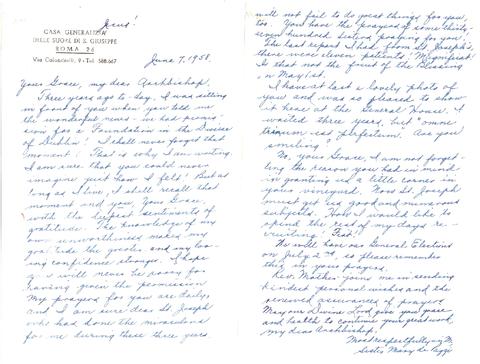 Jesus!
CASA GENERALIZIA
DELLE SUORE DI S. GIUSEPPE
ROMA 26
June 7, 1958.
Your Grace, my dear Archbishop,
Three years ago to-day, I was sitting
in front of you when you told me
the wonderful news - we had permis-
sion for a Foundation in the Diocese
of Dublin. I shall never forget that
moment. That is why I am writing.
I am sure that you could never
imagine just how I felt! But as
long as I live, I shall recall that
moment and you, Your Grace,
with the deepest sentiments of
gratitude. The knowledge of my
own unworthiness makes my
gratitude the greater, and my lov-
ing confidence stronger. I hope
you will never be sorry for
having given the permission
My prayers for you are daily,
and I am sure dear St. Joseph
who has done the miraculous
for me during these three years,
will not fail to do great things for you,
too. You have the prayers of some thirty-
seven hundred sisters praying for you.
The last report I had from St. Joseph's,
there were eleven patients. "Magnificat"
Is that not the fruit of the Blessing
on May 1st.
I have at last a lovely photo of
you and was so pleased to show
it here at the General House. I
waited three years, but "omne
trinum est perfectum". Are you
smiling?
No, your Grace, I am not forget-
ting the reason you had in mind
in granting us a little corner in
your vineyard. Now St. Joseph
must get us good and numerous
subjects. How I would like to
spend the rest of my days re-
cruiting!
We will have our General Elections
on July 2nd, so please remember
this in your prayers.
Rev. Mother joins me in sending
kindest personal wishes and the
renewed assurances of prayers.
May our Divine Lord give you grace
and health to continue your great work,
my dear Archbishop.
Most respectfully in
Sister Mary